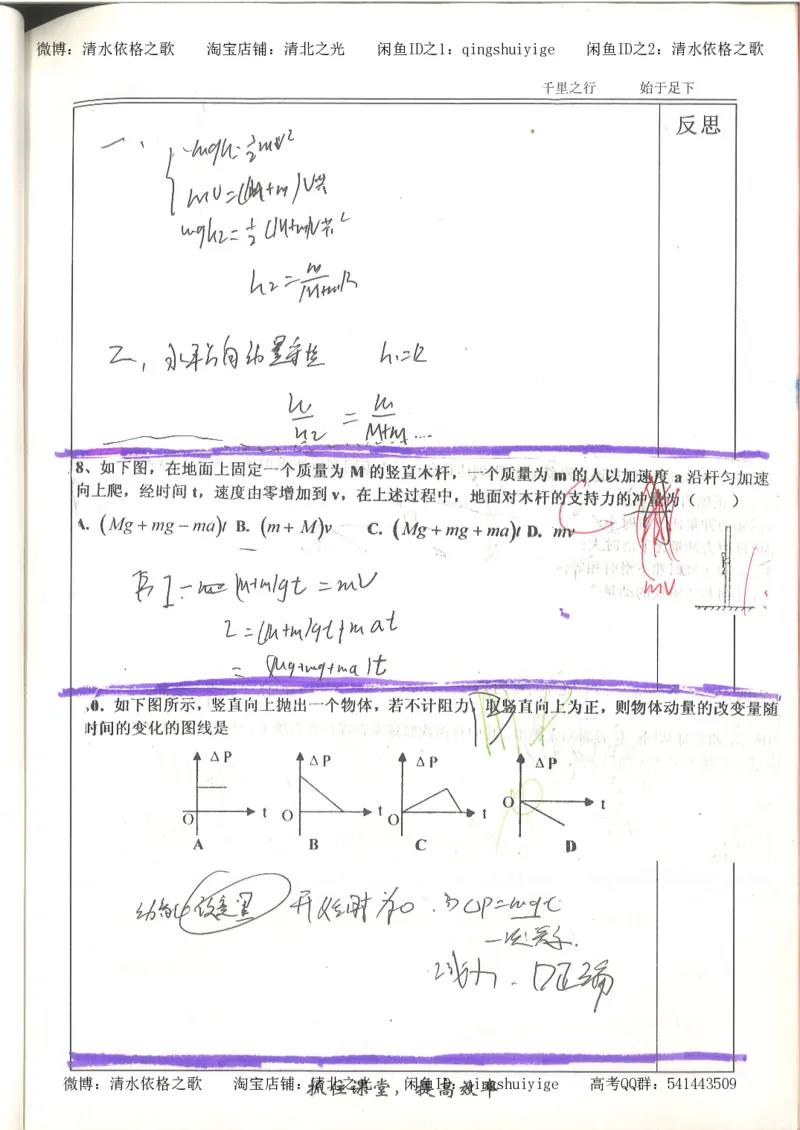 微博：清水依格之歌 淘宝店铺：清北之光 闲鱼ID之1：qingshuiyige 闲鱼ID之2：清水依格之歌
千里之行 始于足下
反思
一、
mgh=½mv²
mv=(M+m)v共
mgh₂=½(M+m)v共²
h₂=m/(M+m)h
二，水平方向动量守恒 h₁=R
8、如下图，在地面上固定一个质量为 M 的竖直木杆，一个质量为 m 的人以加速度 a 沿杆匀加速
向上爬，经时间 t，速度由零增加到 v，在上述过程中，地面对木杆的支持力的冲量为 ）
A. (Mg+mg−ma)t B. (m+M)v C. (Mg+mg+ma)t D. mv
(M+m)gt=mv
mv
I=(M+m)gt+mat
=(Mg+mg+ma)t
0．如下图所示，竖直向上抛出一个物体，若不计阻力，取竖直向上为正，则物体动量的改变量随
时间的变化的图线是
D
ΔP ΔP ΔP ΔP
O t O t O t O t
A B C D
动量的改变量 开始时为0．ΔP=mgt
一次关系．
D正确
微博：清水依格之歌 淘宝店铺：清北之光 闲鱼ID：qingshuiyige 高考QQ群：541443509
抓住课堂，提高效率